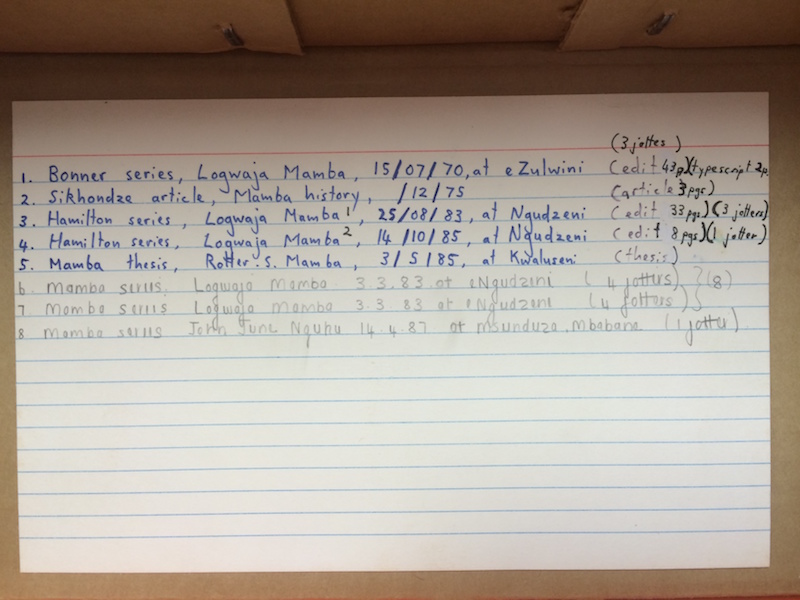 (3 jotters)
1. Bonner series, Logwaja Mamba, 15/07/70, at eZulwini (edit 43p)(typescript 2p.
2. Sikhondze article, Mamba history, /12/75 (article 3pgs)
3. Hamilton series, Logwaja Mamba 1, 25/08/83, at Ngudzeni (edit 33 pgs)(3 jotters)
4. Hamilton series, Logwaja Mamba 2, 14/10/85, at Ngudzeni (edit 8 pgs)(1 jotter)
5. Mamba thesis, Rotter. S. Mamba, 3/5/85, at Kwaluseni (thesis)
6 Mamba series. Logwaja Mamba 3.3.83 at eNgudzeni (4 jotters) } (8)
7 Mamba series Logwaja Mamba 3.3.83 at eNgudzeni (4 jotters) }
8 Mamba series John June 14.4.87 at Msunduza, Mbabane (1 jotter)